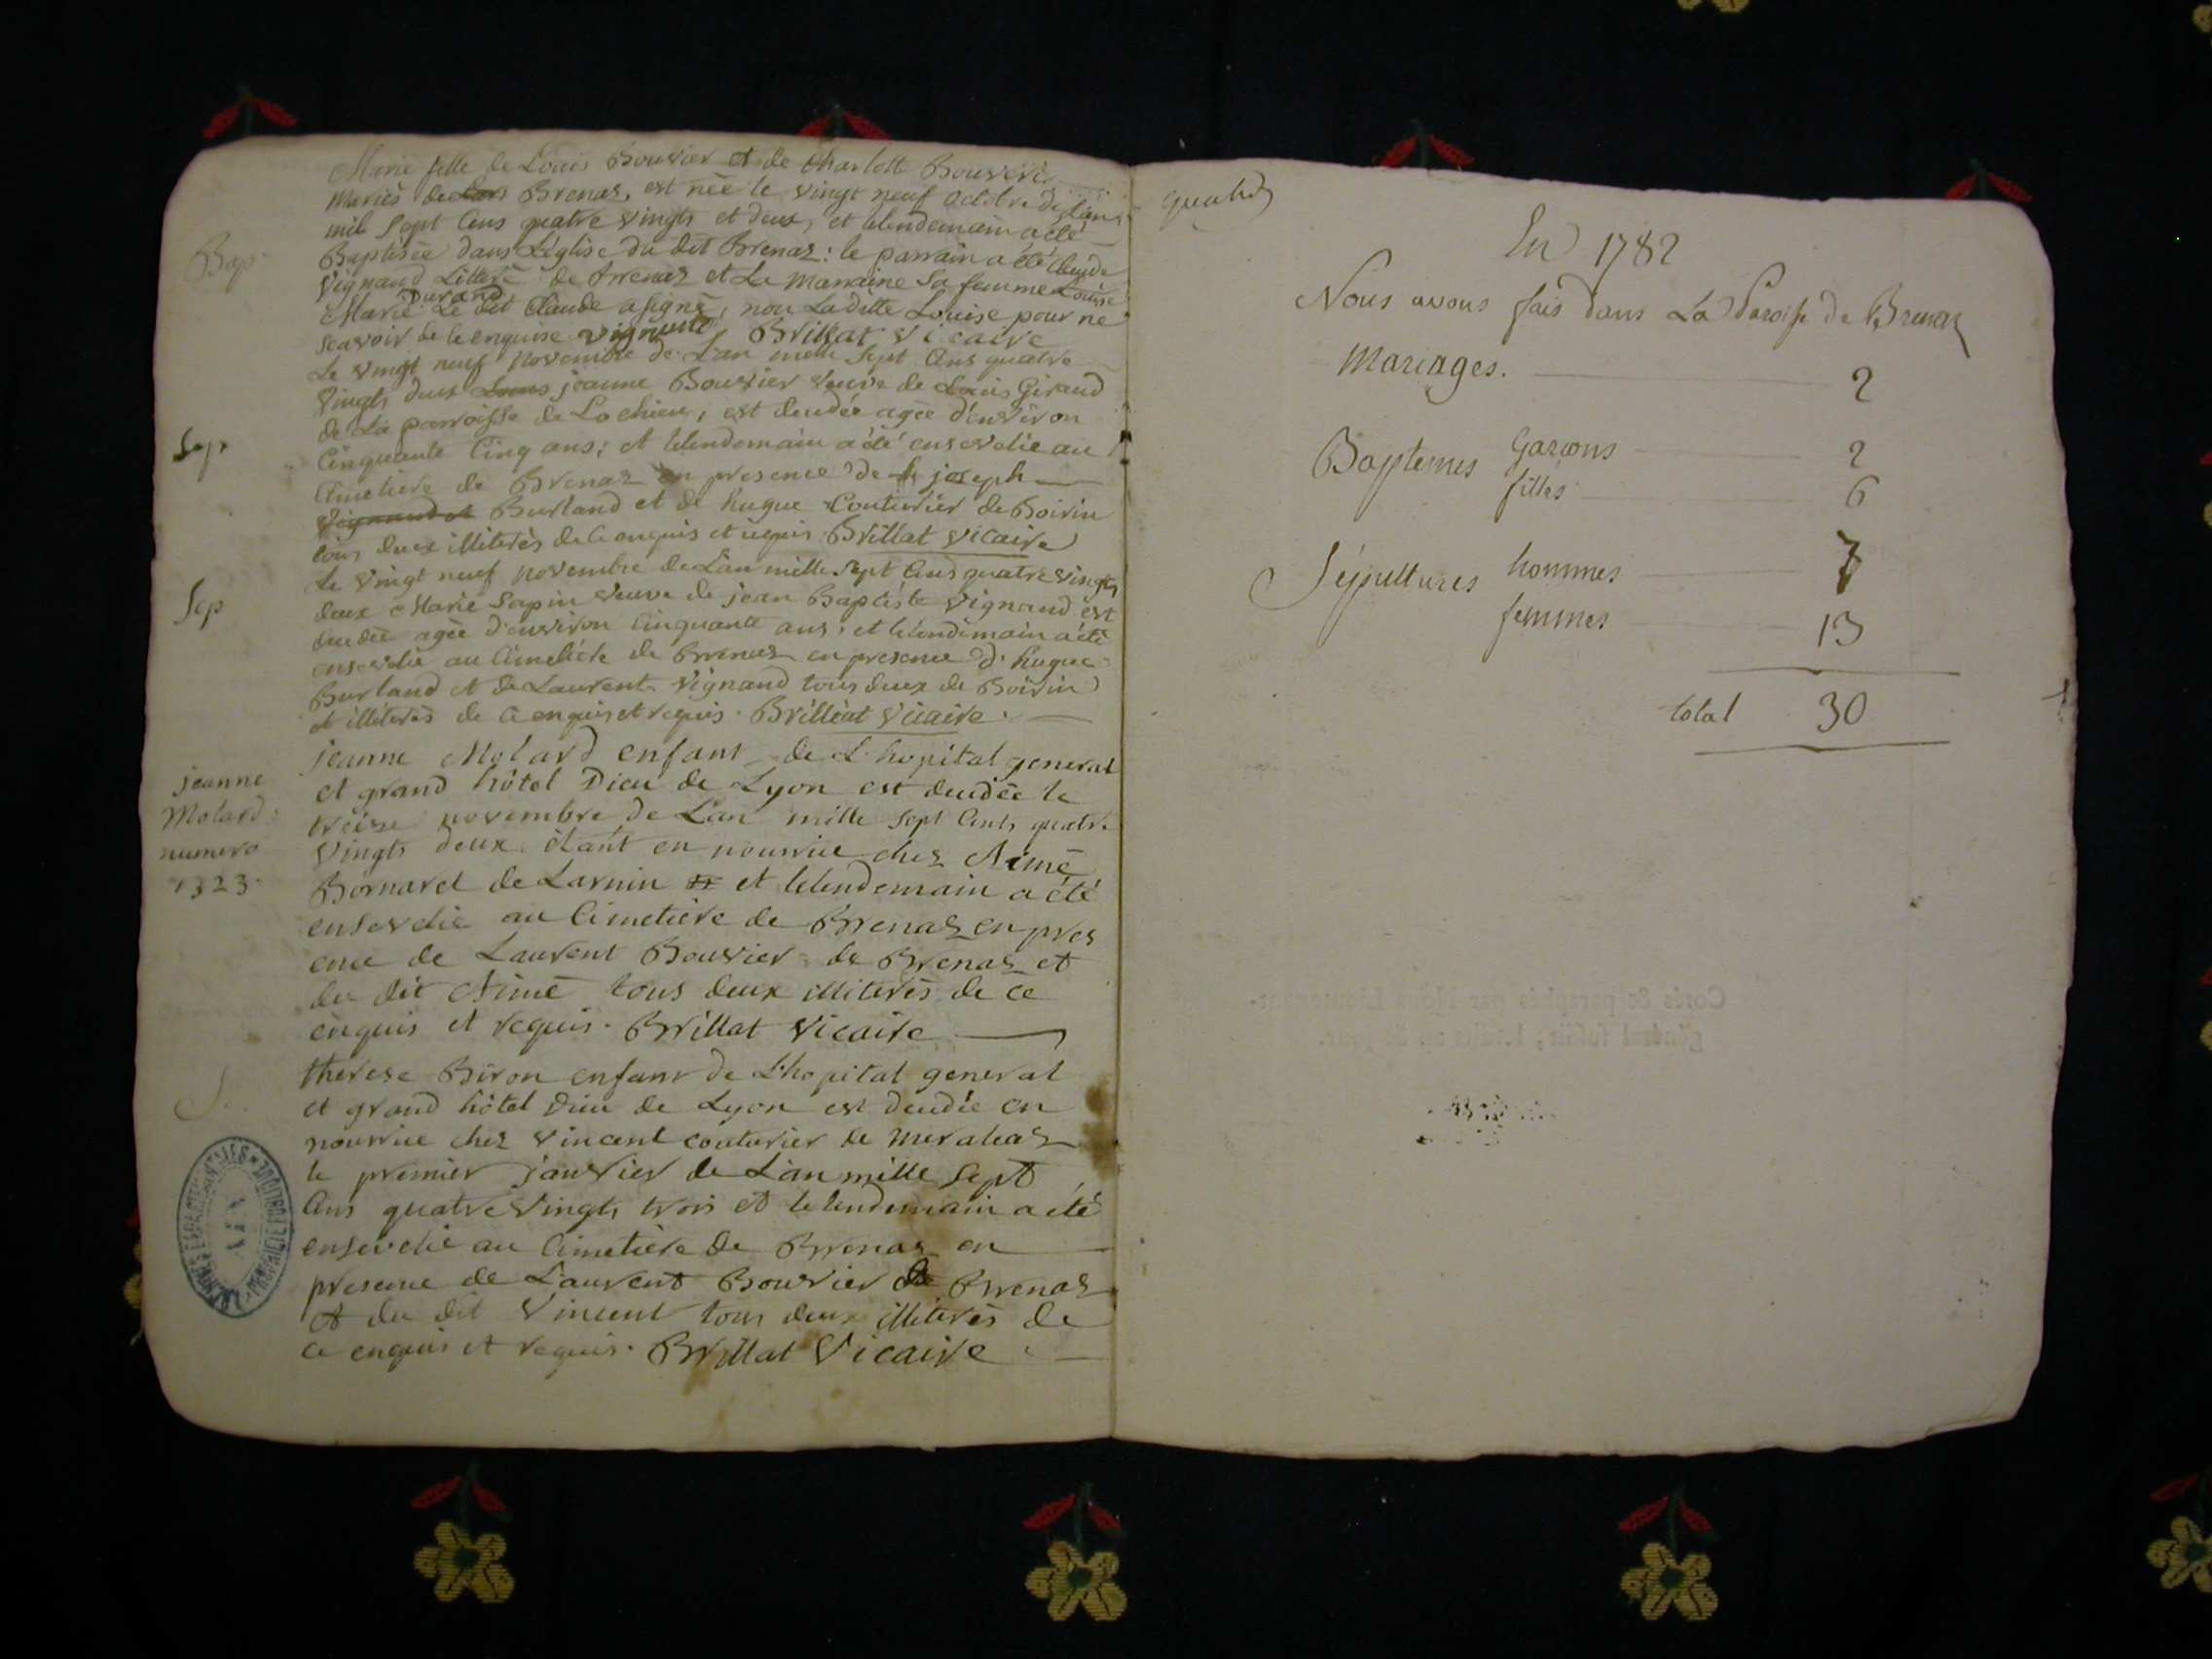 Marie fille de Louis Bouvier et de Charlotte Bouvier
mariés de Brenas, est née le vingt neuf octobre de l'an
mil sept cens quatre vingts et deux, et lelendemain a été
Bap
Baptisée dans L'église du dit Brenaz: le parrain a été Claude
Vignand Litteré de Brenaz et La marraine Sa femme Louise
Durand
Marie Le dit Claude a signé, non Laditte Louise pour ne
scavoir de ce enquise vignand, Brillat vicaire
Le vingt neuf novembre de L'an mille sept cens quatre
vingts deux jeanne Bouvier veuve de Louis Giraud
de La parroisse de Lochieu, est deudée agée d'environ
Sep
Cinquante Cinq ans; et lelendemain a été ensevelie au
Cimetiere de Brenaz en presence de joseph
Vignand et Burland et de hugue Couturier de Boirin
tous deux illiterés de ce enquis et requis Brillat vicaire
Le vingt neuf novembre de L'an mille sept cens quatre vingts
Sep
deux Marie Sapin veuve de jean Baptiste Vignand est
deudée agée d'environ cinquante ans, et lelendemain a été
ensevelie au cimetiere de Brenaz en presence d'hugue
Burland et de Laurent Vignand tous deux de Boirin
et illiterés de ce enquis et requis. Brillat vicaire.
jeanne Molard enfant de L'hopital general
jeanne
et grand hôtel Dieu de Lyon est deudée le
Molard
treize novembre de L'an mille sept Cents quatre
numero
vingts deux étant en nourrice chez Aimé
1323.
Bornard de Larnin et lelendemain a été
ensevelie au Cimetiere de Brenaz en pres
ence de Laurent Bouvier de Brenaz et
du dit Aimé tous deux illiterés de ce
enquis et requis. Brillat Vicaire
therese Biron enfant de L'hopital general
S.
et grand hôtel Dieu de Lyon est deudée en
nourrice chez vincent couturier de
le premier janvier de L'an mille sept
Cens quatre vingts trois et lelendemain a été
ensevelie au Cimetiere de Brenaz en
presence de Laurent Bouvier de Brenaz
et du dit Vincent tous deux illiterés de
ce enquis et requis. Brillat Vicaire
ARCHIVES DEPARTEMENTALES
AIN
En 1782
Nous avons fais dans La Paroisse de Brenaz
Mariages. 2
Baptemes Garcons 2
filles 6
Sépultures hommes 7
femmes 13
total 30